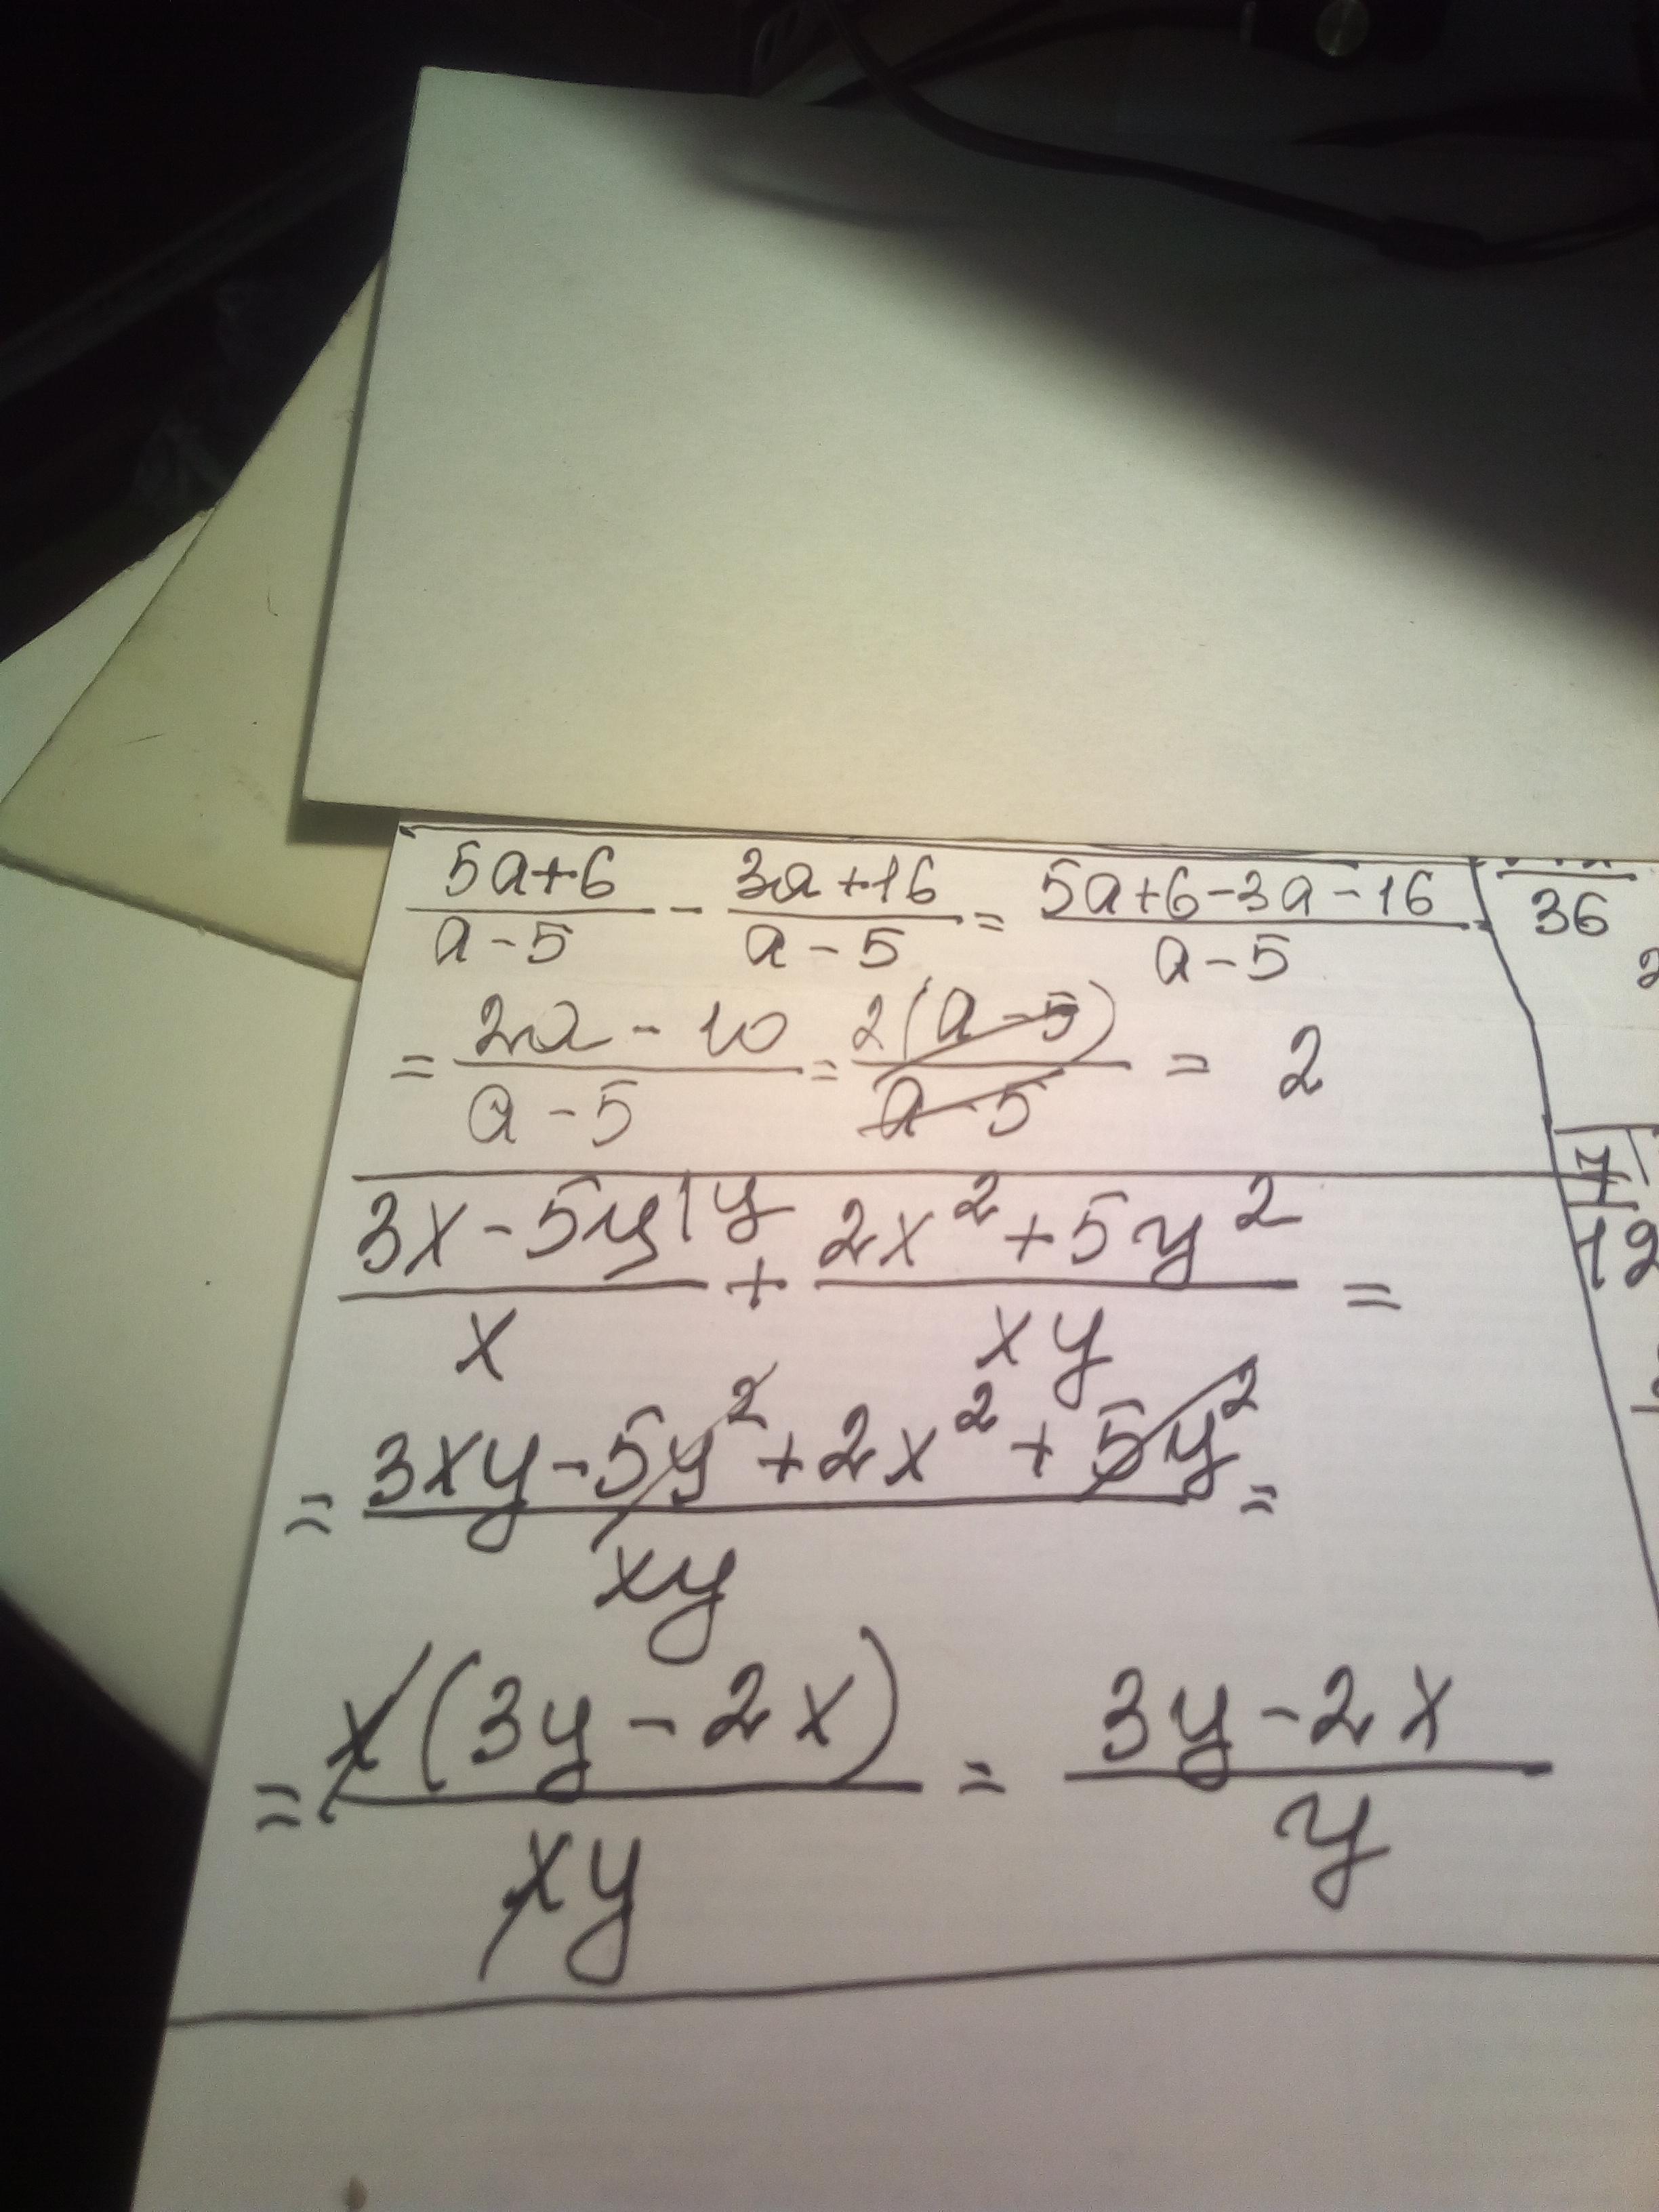 (5a+6)/(a-5) - (3a+16)/(a-5) = (5a+6-3a-16)/(a-5) =
= (2a-10)/(a-5) = 2(a-5)/(a-5) = 2
(3x-5y|y)/x + (2x²+5y²)/(xy) =
= (3xy-5y²+2x²+5y²)/(xy) =
= x(3y-2x)/(xy) = (3y-2x)/y
36
2
7
12